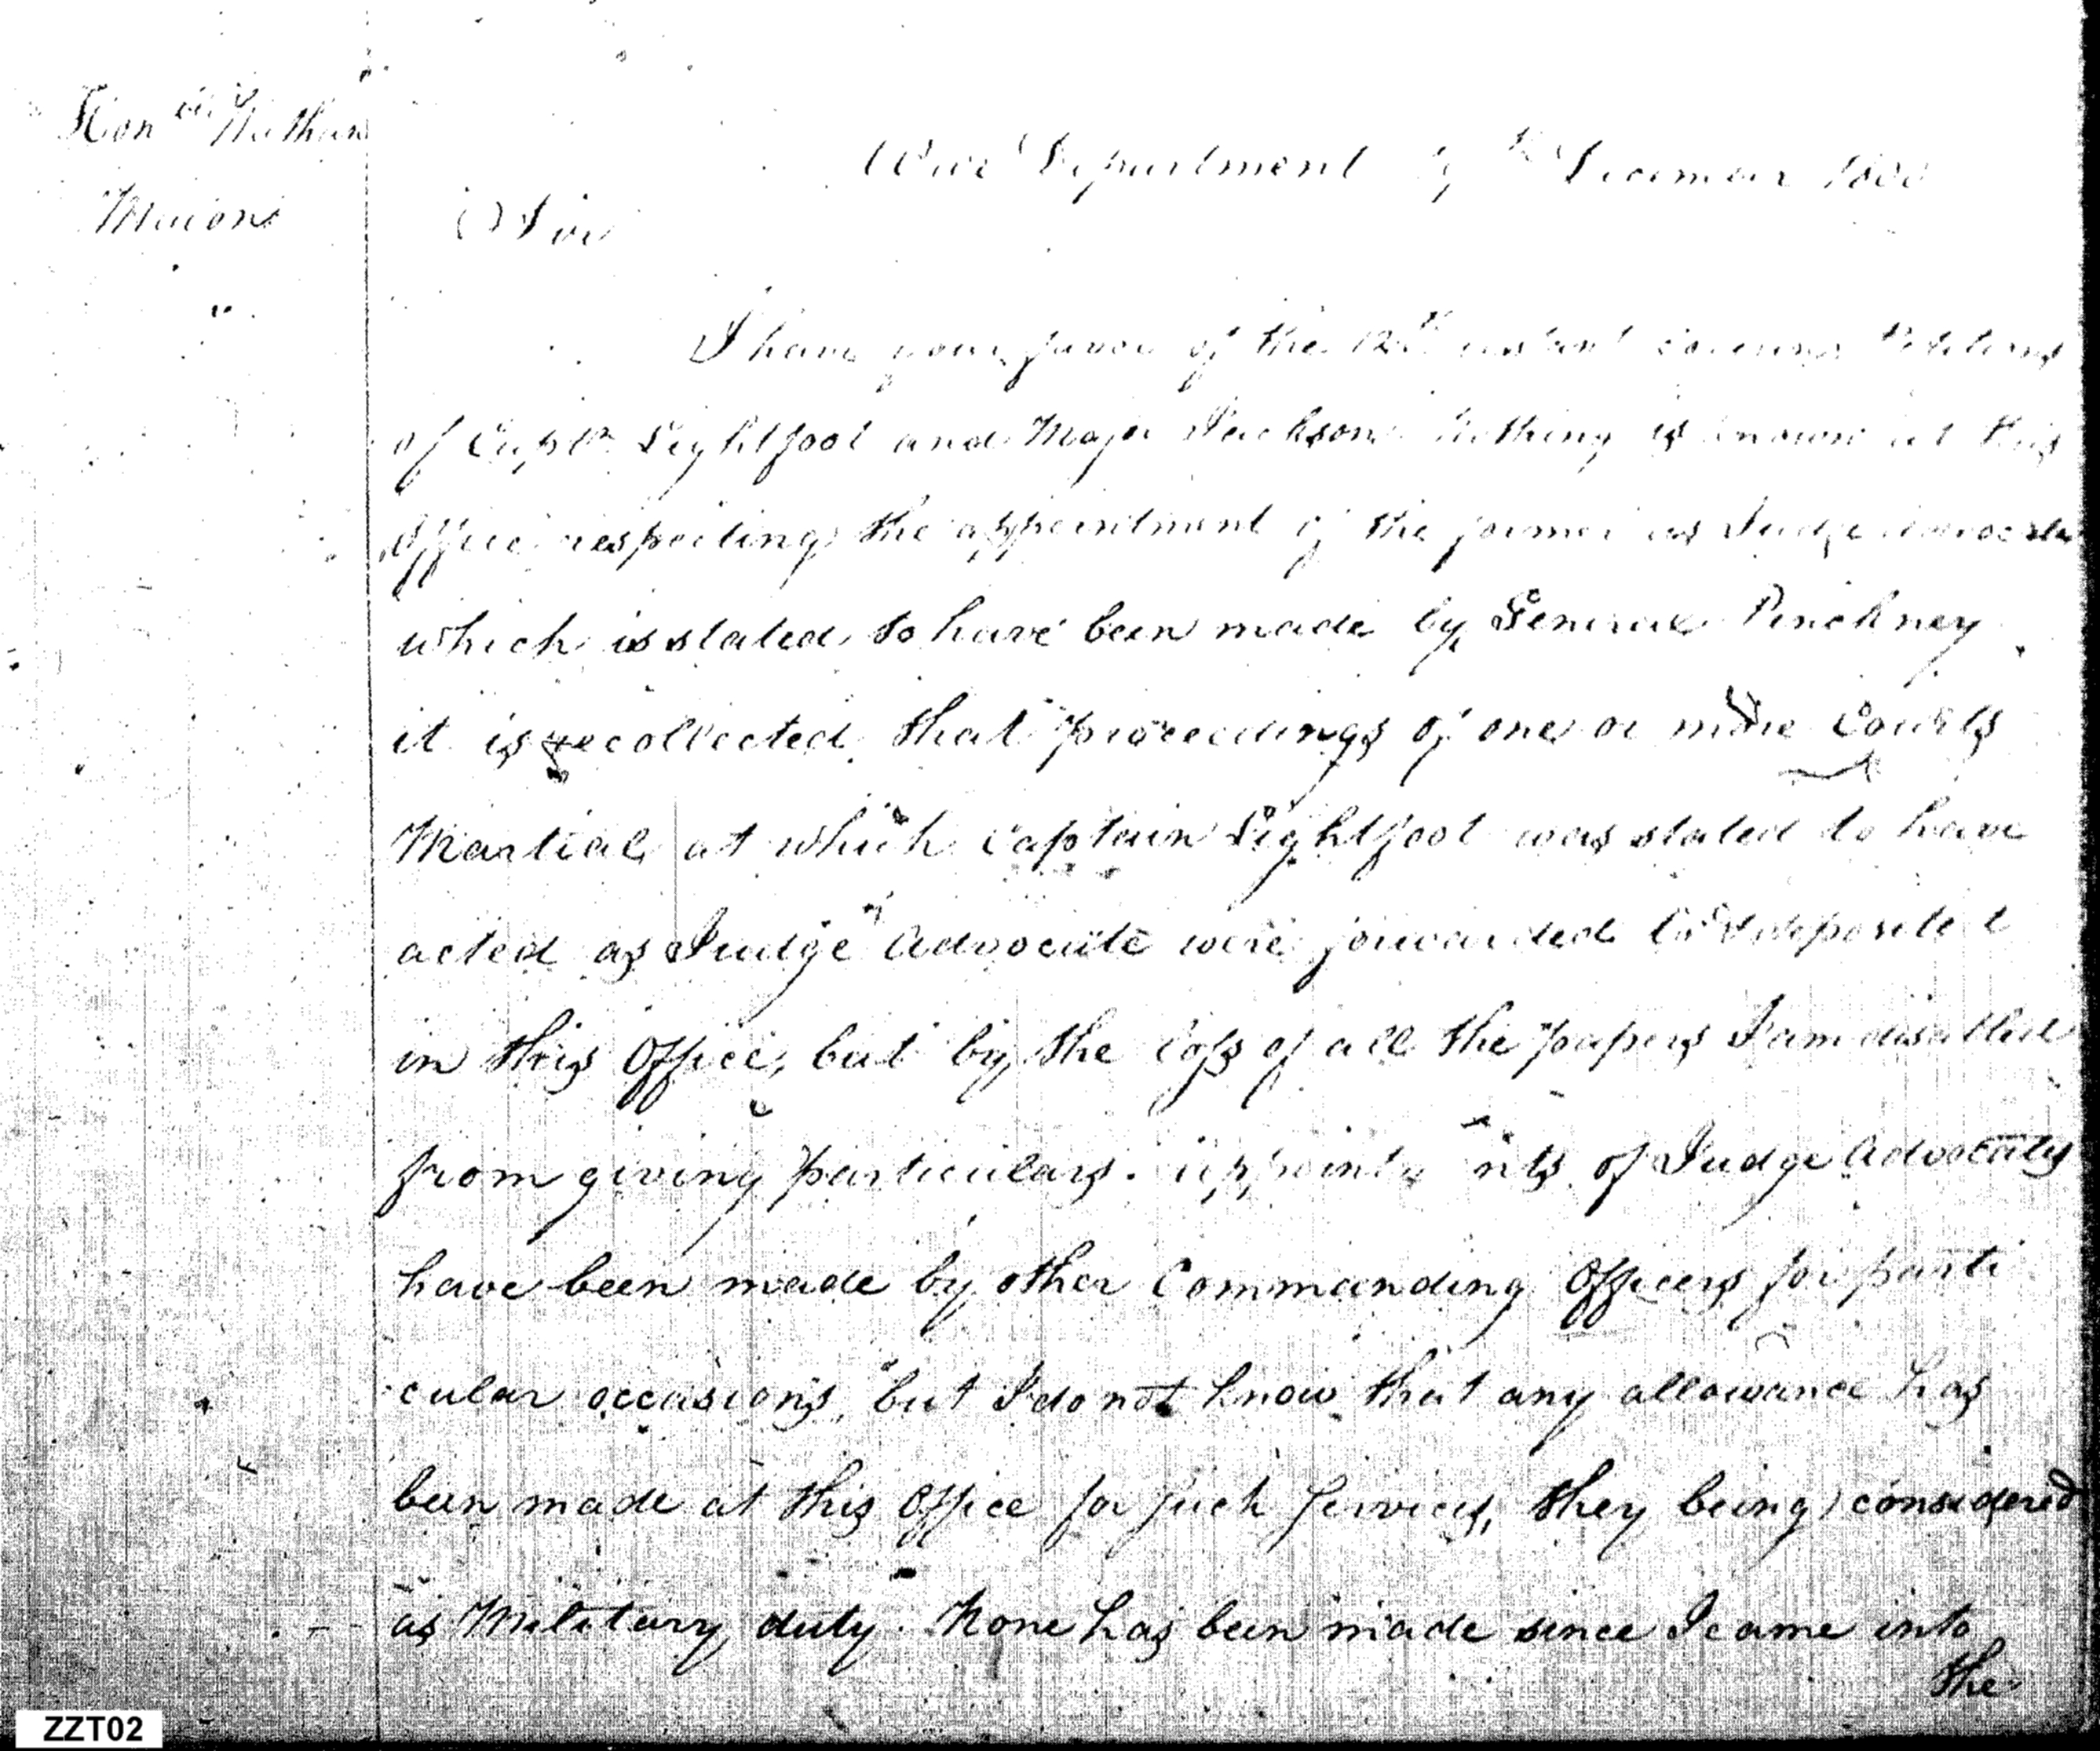 Honble Nathan
Macon
War Department th December 1800
Sir
I have your favor of the 12th instant covering Petitions
of Captn Lightfoot and Major Jackson. Nothing is known at this
Office respecting the appointment of the former as Judge advocate
which is stated to have been made by General Pinckney
it is recollected that proceedings of one or more Courts
Martial at which Captain Lightfoot was stated to have
acted as Judge Advocate were forwarded & deposited
in this Office, but by the loss of all the papers I am disabled
from giving particulars. appointments of Judge Advocates
have been made by other Commanding Officers for parti
cular occasions, but I do not know that any allowance has
been made at this Office for such services, they being considered
as Military duty. None has been made since I came into
the
ZZT02